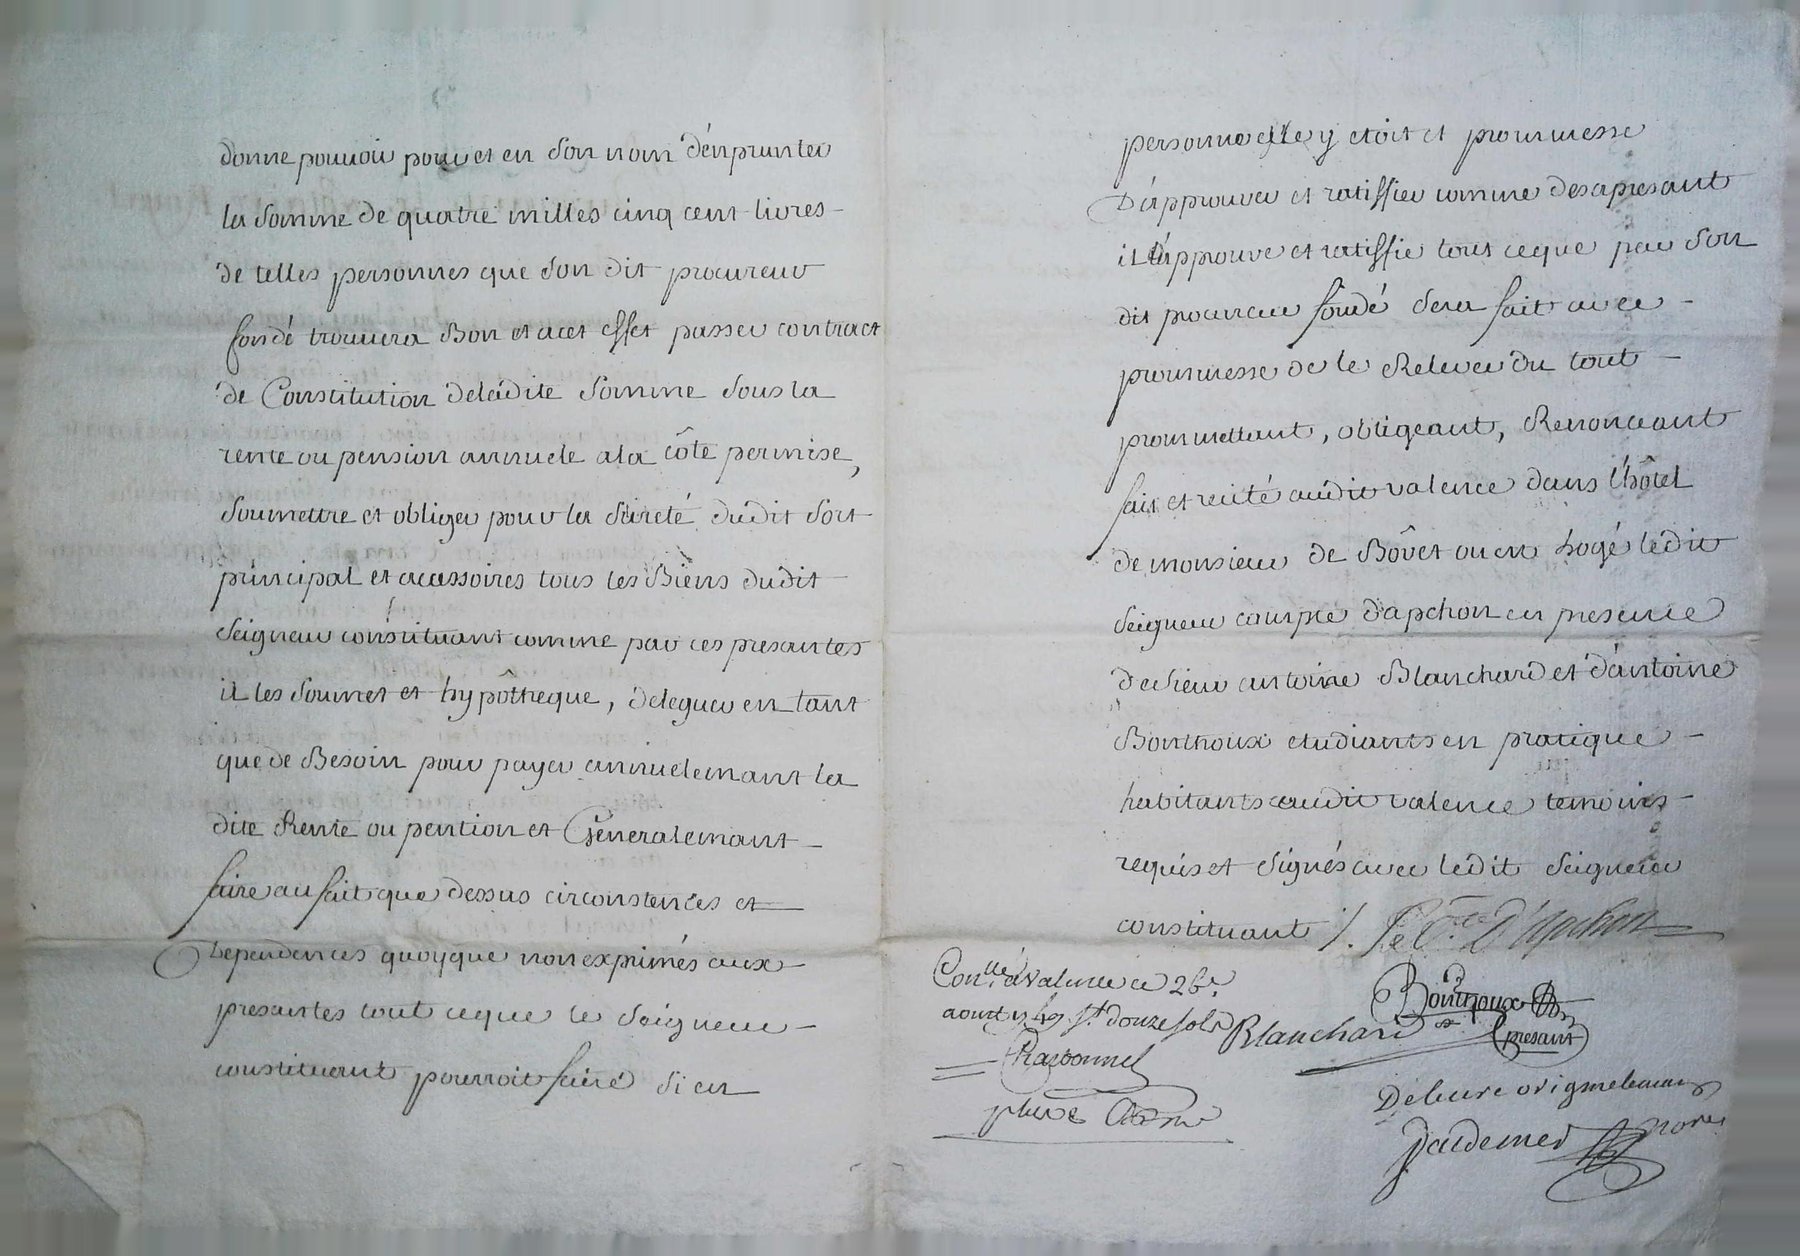 donne pouvoir pour et en son nom d'enprunter
la somme de quatre milles cinq cent livres -
de telles personnes que son dit procureur
fondé trouvera Bon et acet effet passer contract
de Constitution deladite somme sous la
rente ou pension annuele ala côte permise,
soumettre et obliger pour la sureté dudit sort
principal et accessoires tous les Biens dudit -
seigneur constituant comme par ces presantes
il les soumet et hypôtheque, deleguer en tant
que de Besoin pour payer annuelemant la
dite Rente ou pention et Géneralemant -
faire au fait que dessus circonstences et
Dependences quoyque non exprimés aux -
presantes tout ceque le seigneur -
constituant pourroit faire si en
personne elle y etoit et prommesse
D'approuver et ratiffier comme desapresant
il approuve et ratiffie tout ceque par son
dit procureur fondé sera fait avec -
prommesse de le Relever du tout -
prommettant, obligeant, Renonceant
fait et recité audit valence dans l'hôtel
de monsieur de Bôvet ou en logé ledit
seigneur compte d'apchon en presence
de sieur antoine Blanchard et d'antoine
Bonthoux etudiants en pratique -
habitants audit valence temoins -
requis et signés avec ledit seigneur
constituant /. Le C.te D'Apchon
Con.llé a valence ce 26.e
aoust 1749 r.t douze sols
Bonthoux
presant
Blanchard
Charbonnel
Deleure originelemant